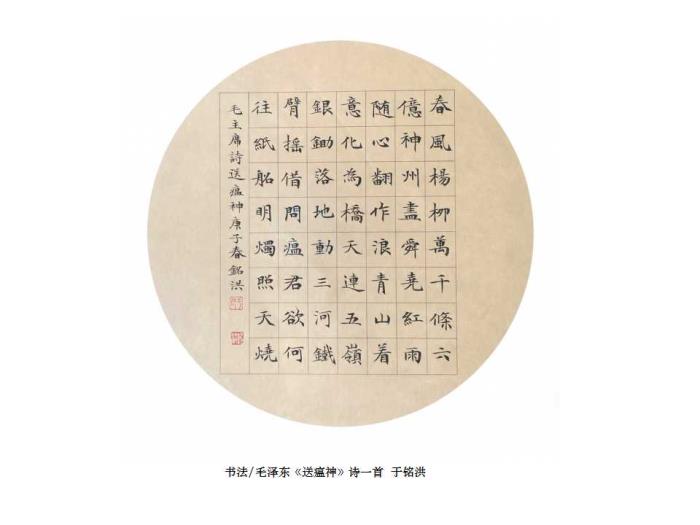 春風楊柳萬千條六
億神州盡舜堯紅雨
随心翻作浪青山着
意化為橋天連五嶺
銀鋤落地動三河鐵
臂摇借問瘟君欲何
往紙船明燭照天燒
毛主席詩送瘟神庚子春銘洪
书法/毛泽东《送瘟神》诗一首 于铭洪